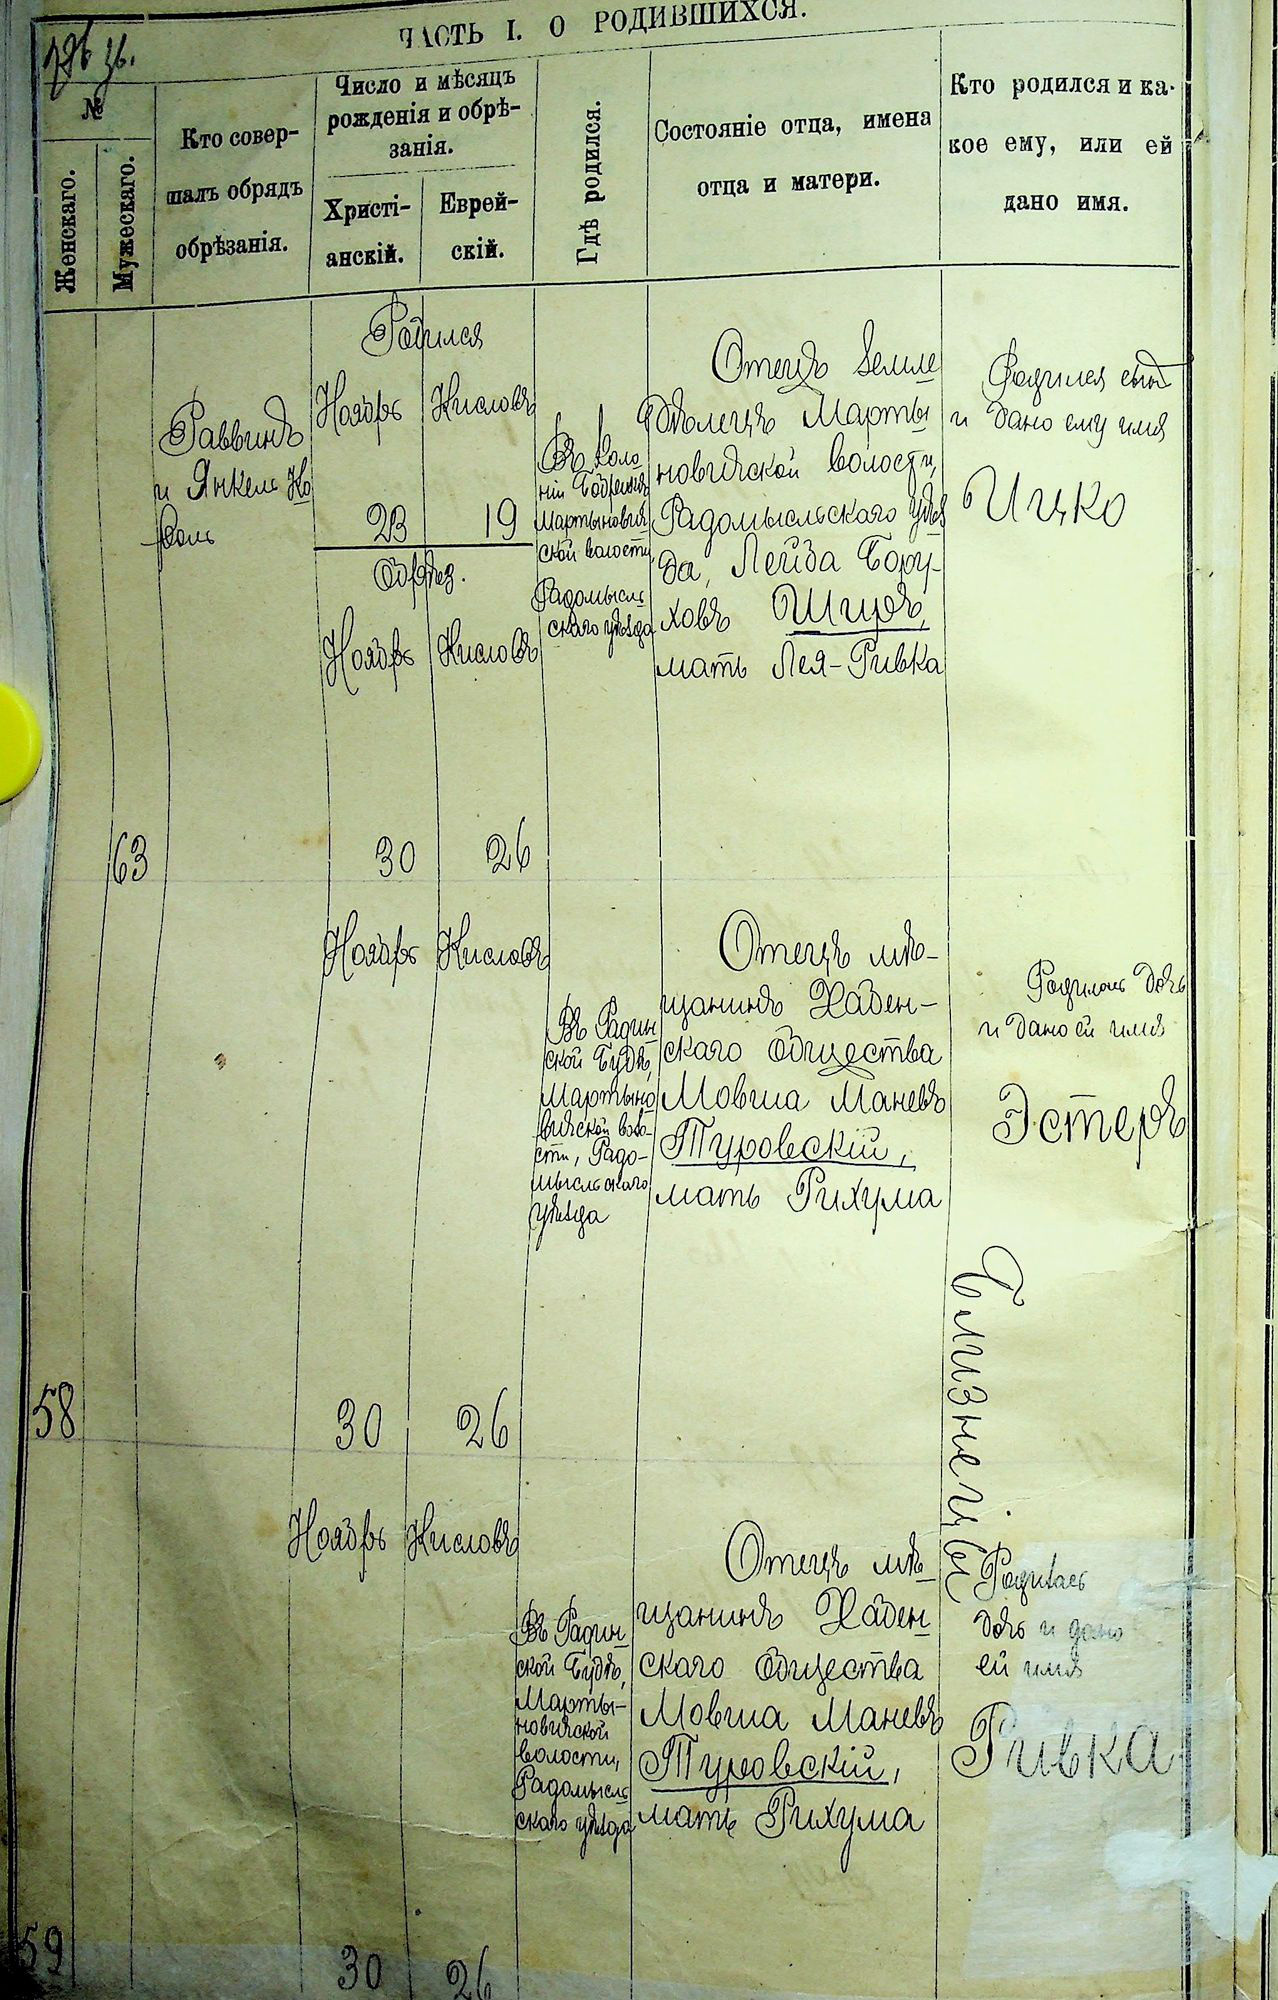 ЧАСТЬ I. О РОДИВШИХСЯ.
№
Женскаго.
Мужескаго.
Кто совер-
шалъ обрядъ
обрѣзанія.
Число и мѣсяцъ
рожденія и обрѣ-
занія.
Христі-
анскій.
Еврей-
скій.
Гдѣ родился.
Состояніе отца, имена
отца и матери.
Кто родился и ка-
кое ему, или ей
дано имя.
63
Раввинъ
и Янкель Ко
валь
Родился
Ноябрь Кисловъ
23 19
Обрѣз.
Ноябрь Кисловъ
30 26
Въ Коло
ніи
Мартынович
ской волости,
Радомысль
скаго уѣзда
Отецъ земле
дѣлецъ Марты
новичской волости,
Радомысльскаго уѣз
да, Лейба Бору-
ховъ Ширъ,
мать Лея-Ривка
Родился сынъ
и дано ему имя
Ицко
58
Ноябрь Кисловъ
30 26
Въ Радин
ской Будѣ,
Мартыно
вичской воло-
сти, Радо-
мысльскаго
уѣзда
Отецъ мѣ-
щанинъ Хабен-
скаго общества
Мовша Маневъ
Туровскій,
мать Рихума
Родилась дочь
и дано ей имя
Эстеръ
Близнецы
59
Ноябрь Кисловъ
30 26
Въ Радин
ской Будѣ,
Марты-
новичской
волости,
Радомысль
скаго уѣзда
Отецъ мѣ-
щанинъ Хабен
скаго общества
Мовша Маневъ
Туровскій,
мать Рихума
Родилась
дочь и дано
ей имя
Ривка